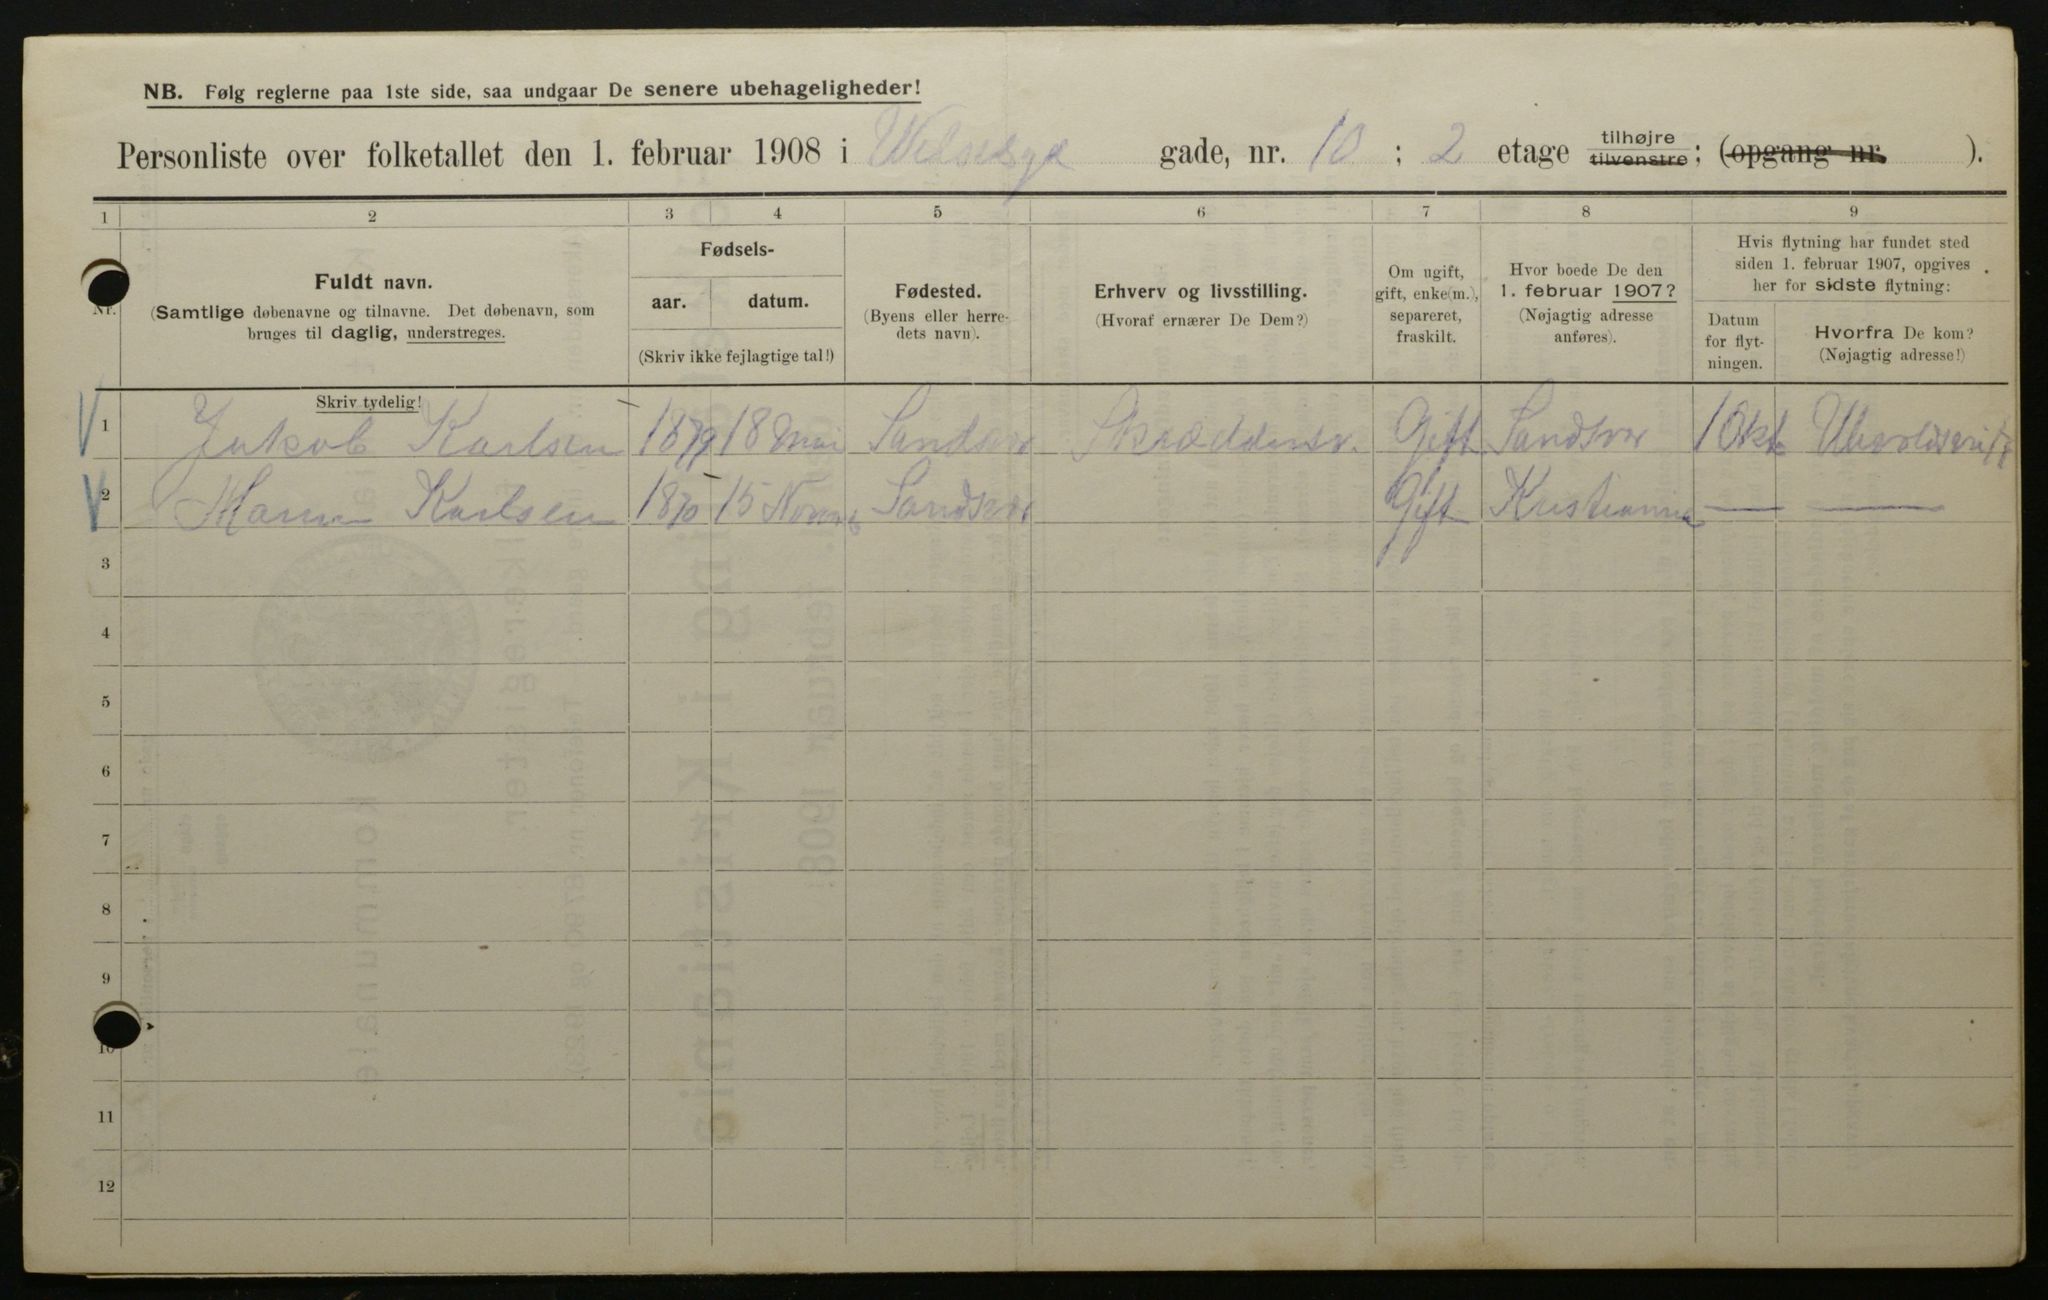 NB. Følg reglerne paa 1ste side, saa undgaar De senere ubehageligheder!
Personliste over folketallet den 1. februar 1908 i gade, nr. 10 ; 2 etage tilhøjre tilvenstre ; (opgang nr. ).
1 2 3 4 5 6 7 8 9
Nr.
Fuldt navn.
(Samtlige døbenavne og tilnavne. Det døbenavn, som
bruges til daglig, understreges.
Skriv tydelig!
Fødsels-
aar. datum.
(Skriv ikke fejlagtige tal!)
Fødested.
(Byens eller herre-
dets navn).
Erhverv og livsstilling.
(Hvoraf ernærer De Dem?)
Om ugift,
gift, enke(m.),
separeret,
fraskilt.
Hvor boede De den
1. februar 1907?
(Nøjagtig adresse
anføres).
Hvis flytning har fundet sted
siden 1. februar 1907, opgives
her for sidste flytning:
Datum
for flyt-
ningen.
Hvorfra De kom?
(Nøjagtig adresse!)
1 Jakob Karlsen 1879 18 Mai Sandsvr Skræddersv. Gift Sandsvr 1 Okt
2 Karlsen 1875 15 Sandsvr Gift Kristiania — —
3
4
5
6
7
8
9
10
11
12